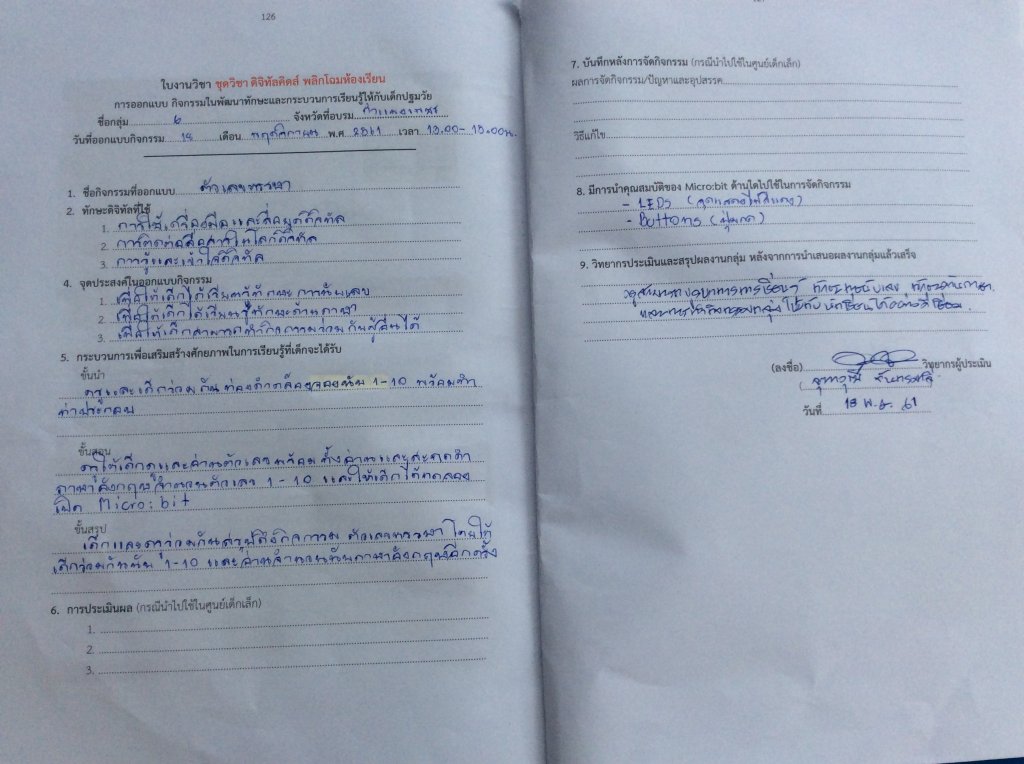 126
ใบงานวิชา ชุดวิชา ดิจิทัลคิดส์ พลิกโฉมห้องเรียน
การออกแบบ กิจกรรมในพัฒนาทักษะและกระบวนการเรียนรู้ให้กับเด็กปฐมวัย
ชื่อกลุ่ม 6 จังหวัดที่อบรม กำแพงเพชร
วันที่ออกแบบกิจกรรม 18 เดือน พฤศจิกายน พ.ศ. 2561 เวลา 13.00-15.00น.
1. ชื่อกิจกรรมที่ออกแบบ ตัวเลขหรรษา
2. ทักษะดิจิทัลที่ใช้
1. การใช้เครื่องมือและสื่อยุคดิจิทัล
2. การติดต่อสื่อสารในโลกดิจิทัล
3. การรู้และเข้าใจดิจิทัล
4. จุดประสงค์ในออกแบบกิจกรรม
1. เพื่อให้เด็กได้เรียนรู้ทักษะ การนับเลข
2. เพื่อให้เด็กได้เรียนรู้ทักษะด้านภาษา
3. เพื่อให้เด็กสามารถทำกิจกรรมร่วมกับผู้อื่นได้
5. กระบวนการเพื่อเสริมสร้างศักยภาพในการเรียนรู้ที่เด็กจะได้รับ
ขั้นนำ
ครูและเด็กร่วมกันท่องคำคล้องจองนับ 1-10 พร้อมทำ
ท่าประกอบ
ขั้นสอน
ครูให้เด็กดูและอ่านตัวเลขพร้อมทั้งอ่านและสะกดคำ
ภาษาอังกฤษจำนวนตัวเลข 1-10 และให้เด็กได้ทดลอง
เปิด Micro:bit
ขั้นสรุป
เด็กและครูร่วมกันสรุปถึงกิจกรรม ตัวเลขหรรษา โดยให้
เด็กร่วมกันนับ 1-10 และอ่านจำนวนนับภาษาอังกฤษอีกครั้ง
6. การประเมินผล (กรณีนำไปใช้ในศูนย์เด็กเล็ก)
1.
2.
3.
7. บันทึกหลังการจัดกิจกรรม (กรณีนำไปใช้ในศูนย์เด็กเล็ก)
ผลการจัดกิจกรรม/ปัญหาและอุปสรรค
วิธีแก้ไข
8. มีการนำคุณสมบัติของ Micro:bit ด้านใดไปใช้ในการจัดกิจกรรม
- LEDS (จุดแสดงไฟสีแดง)
- Buttons (ปุ่มกด)
9. วิทยากรประเมินและสรุปผลงานกลุ่ม หลังจากการนำเสนอผลงานกลุ่มแล้วเสร็จ
(ลงชื่อ) วิทยากรผู้ประเมิน
วันที่ 18 พ.ย. 61